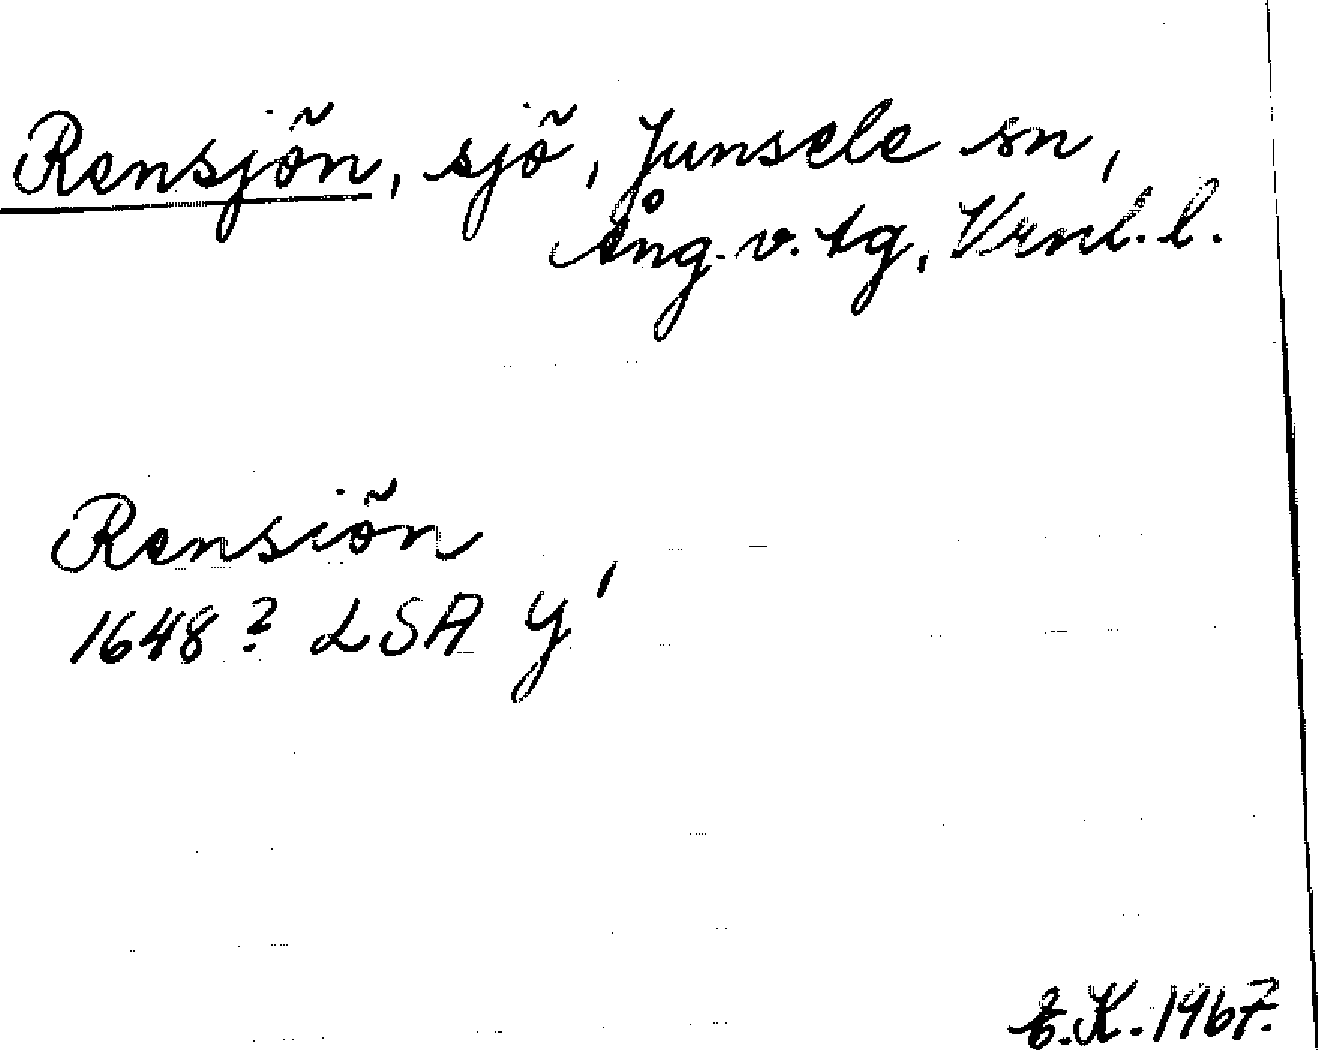 Rensjön, sjö, Junsele sn,
Ång. v. tg, Vrnl. l.
Rensiön
1648? LSA Y'
E.K. 1967.